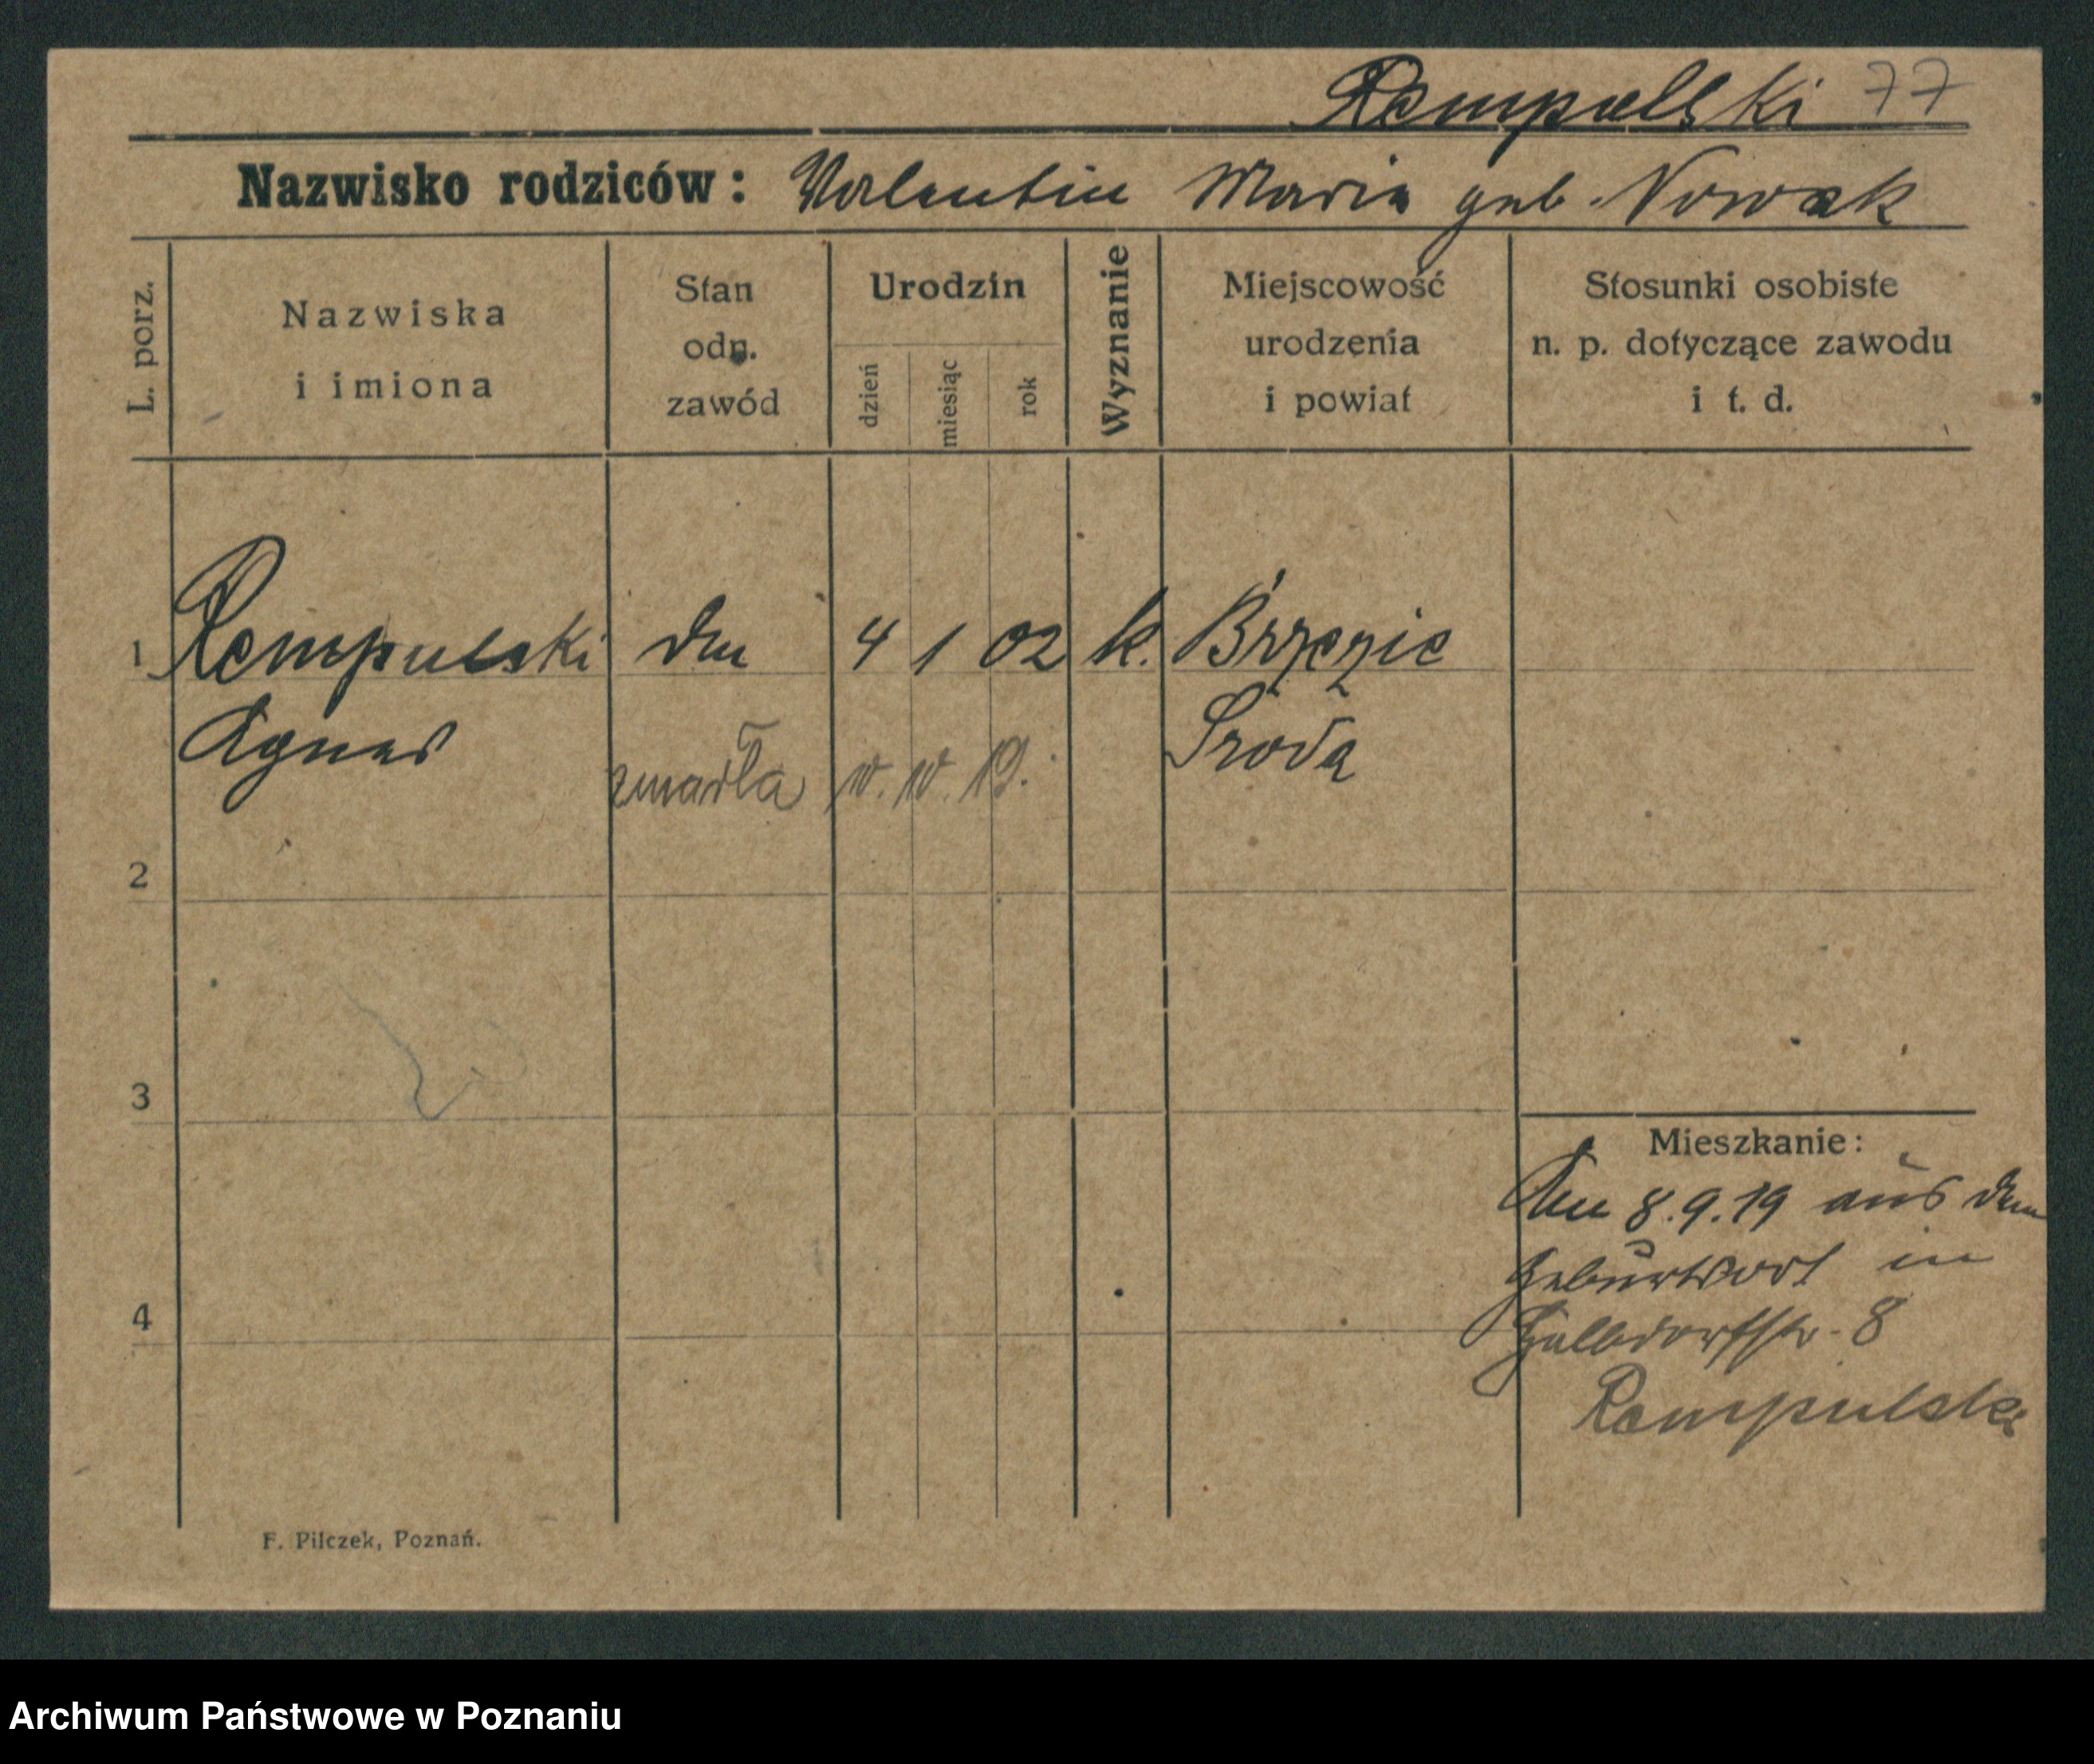 Rempulski 77
Nazwisko rodziców: Valentin Maria geb. Nowak
L. porz.
Nazwiska
i imiona
Stan
odp.
zawód
Urodzin
dzień
miesiąc
rok
Wyznanie
Miejscowość
urodzenia
i powiat
Stosunki osobiste
n. p. dotyczące zawodu
i t. d.
1 Rempulski 4 1 02 k. Brzezie
Agnes Środa
zmarła 19.
2
3
Mieszkanie:
Am 8.9.19 aus dem
Geburtsort in
4
Halbdorfstr. 8
Rempulski
F. Pilczek, Poznań.
Archiwum Państwowe w Poznaniu